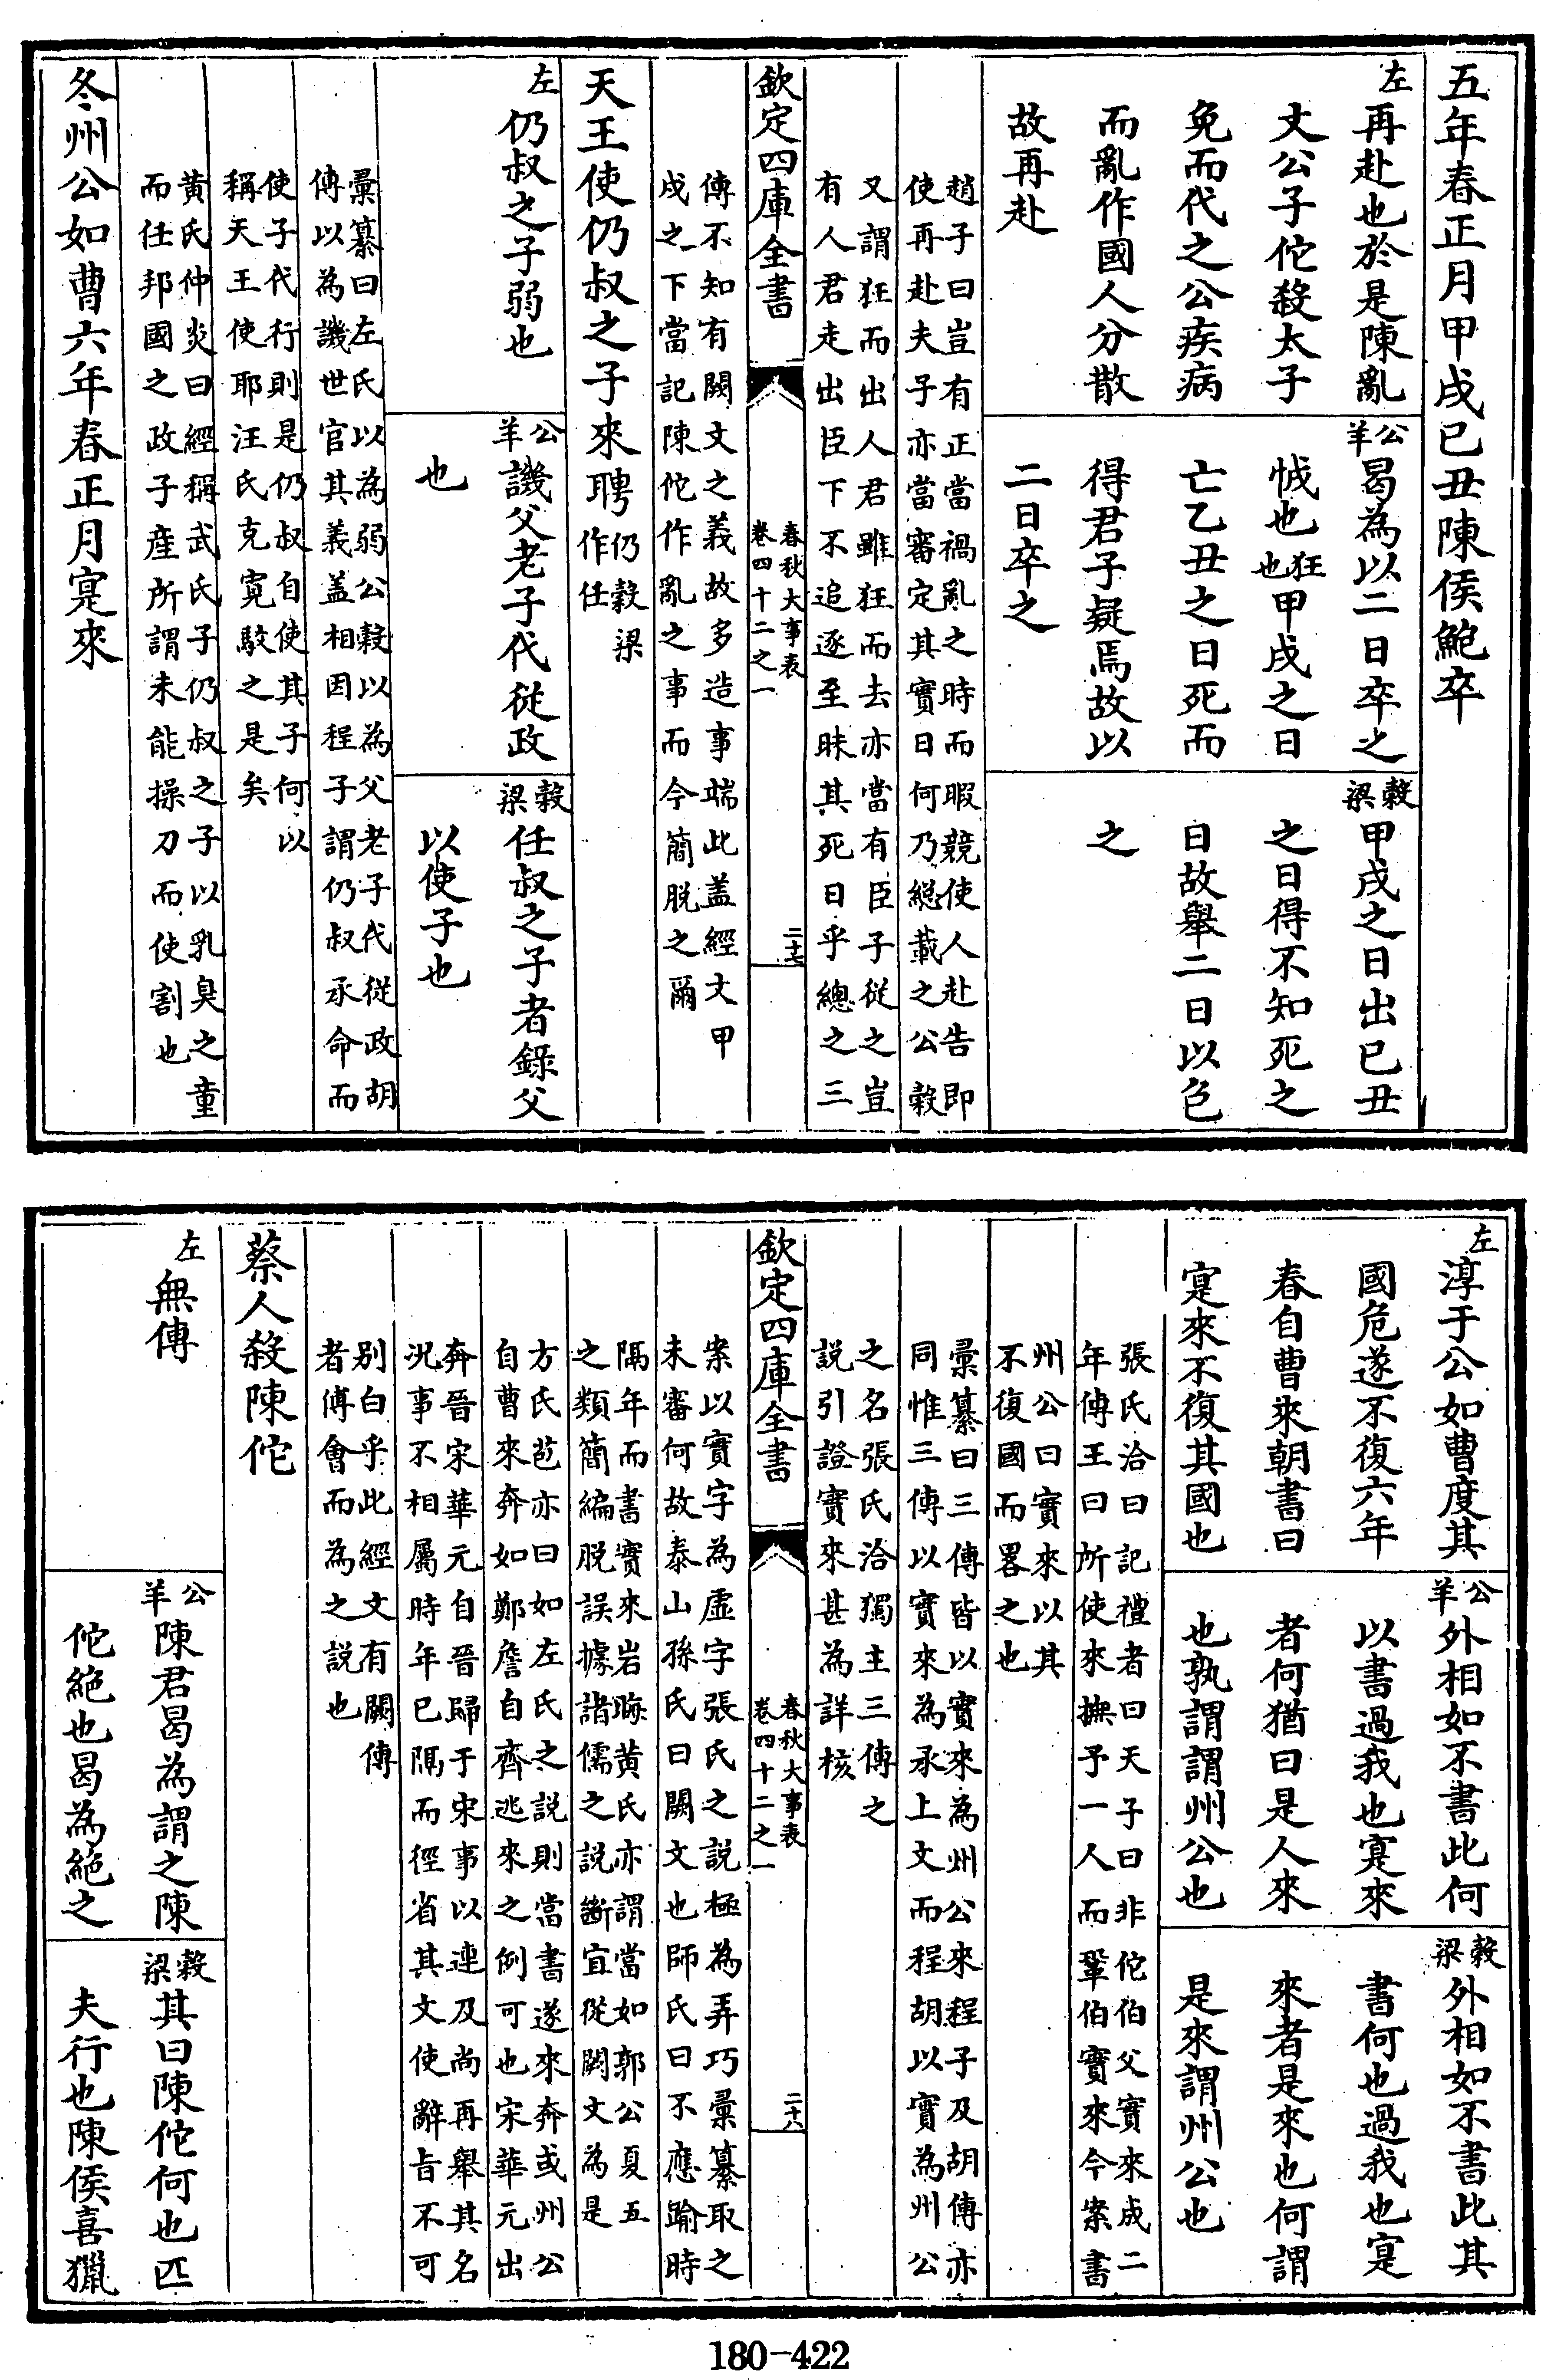 五年春正月甲戌已丑陳侯鮑卒
左
再赴也於是陳亂
文公子佗殺太子
免而代之公疾病
而亂作國人分散
故再赴
公羊
曷為以二日卒之
怴也狂也甲戌之日
亡乙丑之日死而
得君子疑焉故以
二日卒之
穀梁
甲戌之日出已丑
之日得不知死之
日故舉二日以包
之
趙子曰豈有正當禍亂之時而暇競使人赴告即
使再赴夫子亦當審定其實日何乃總載之公穀
又謂狂而出人君雖狂而去亦當有臣子從之豈
有人君走出臣下不追逐至昧其死日乎總之三
欽定四庫全書
春秋大事表
卷四十二之一
二十七
傳不知有闕文之義故多造事端此盖經文甲
戌之下當記陳佗作亂之事而今簡脱之爾
天王使仍叔之子來聘
仍穀梁
作任
左
仍叔之子弱也
公羊
譏父老子代從政
也
穀梁
任叔之子者錄父
以使子也
彙纂曰左氏以為弱公穀以為父老子代從政胡
傳以為譏世官其義盖相因程子謂仍叔承命而
使子代行則是仍叔自使其子何以
稱天王使耶汪氏克寛駮之是矣
黄氏仲炎曰經稱武氏子仍叔之子以乳臭之童
而任邦國之政子産所謂未能操刀而使割也
冬州公如曹六年春正月寔來
左
淳于公如曹度其
國危遂不復六年
春自曹來朝書曰
寔來不復其國也
公羊
外相如不書此何
以書過我也寔來
者何猶曰是人來
也孰謂謂州公也
穀梁
外相如不書此其
書何也過我也寔
來者是來也何謂
是來謂州公也
張氏洽曰記禮者曰天子曰非佗伯父實來成二
年傳王曰所使來撫予一人而鞏伯實來今案書
州公曰實來以其
不復國而畧之也
彙纂曰三傳皆以實來為州公來程子及胡傳亦
同惟三傳以實來為承上文而程胡以實為州公
之名張氏洽獨主三傳之
説引證實來甚為詳核
欽定四庫全書
春秋大事表
卷四十二之一
二十八
案以實字為虛字張氏之説極為弄巧彙纂取之
未審何故泰山孫氏曰闕文也師氏曰不應踰時
隔年而書實來岩晦黄氏亦謂當如郭公夏五
之類簡編脱誤據諸儒之説斷宜從闕文為是
方氏苞亦曰如左氏之説則當書遂來奔或州公
自曹來奔如鄭詹自齊逃來之例可也宋華元出
奔晉宋華元自晉歸于宋事以連及尚再舉其名
况事不相屬時年已隔而徑省其文使辭旨不可
别白乎此經文有闕傳
者傅會而為之説也
蔡人殺陳佗
左
無傳
公羊
陳君曷為謂之陳
佗絶也曷為絶之
穀梁
其曰陳佗何也匹
夫行也陳侯喜獵
180-422